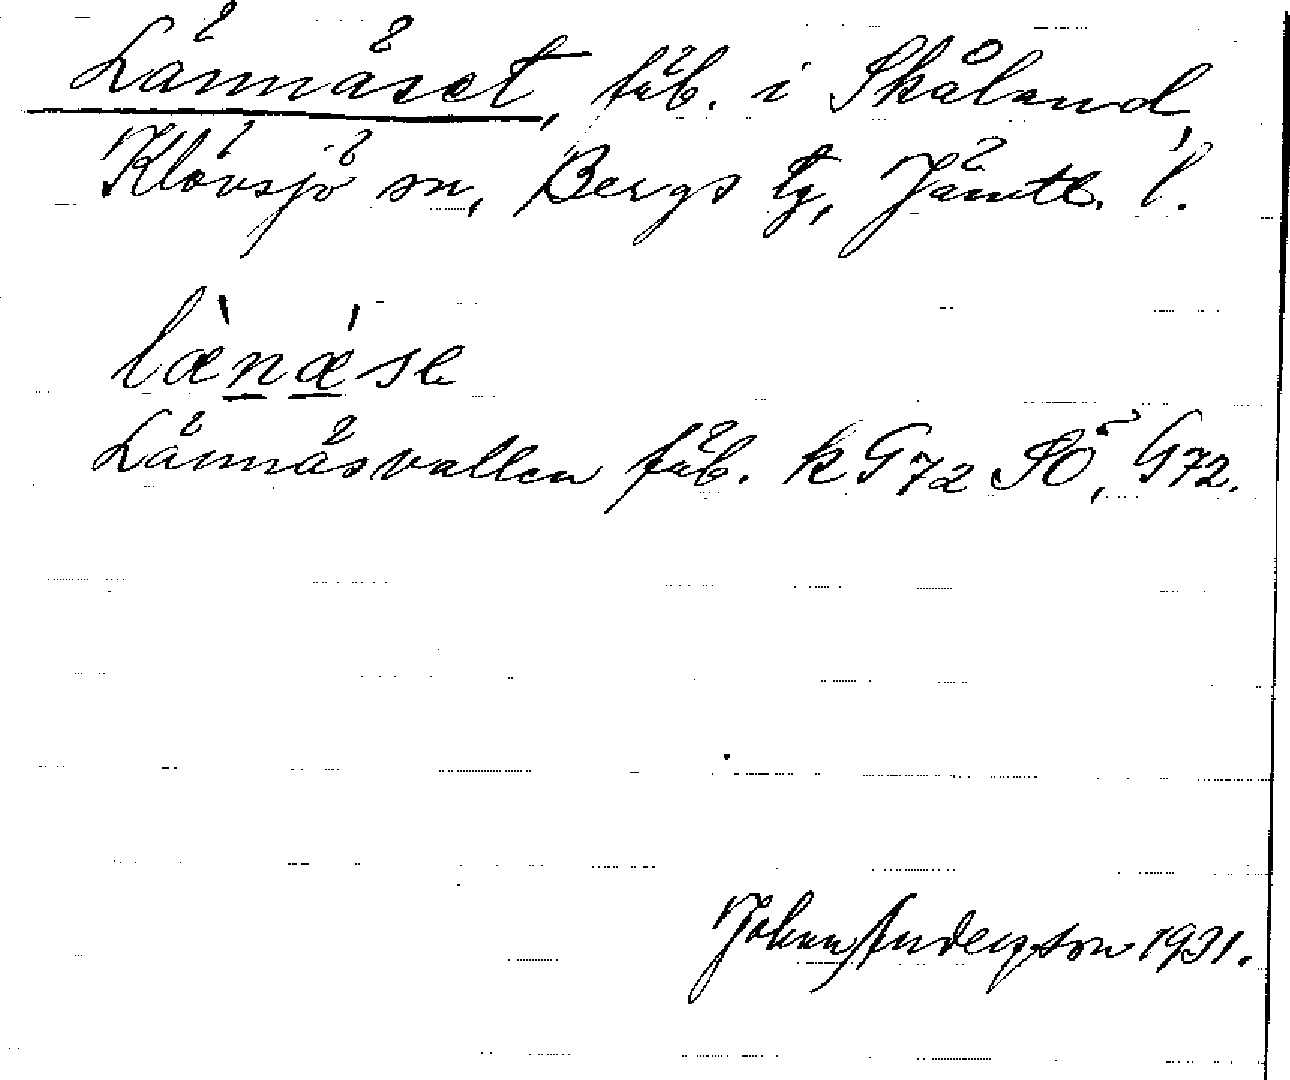 Lännäset, fäb. i Skåland,
Klövsjö sn, Bergs tg, Jämtl. l.
læ̀nǽse
Lännäsvallen fäb. kG72 SÖ, G72.
Johan Anderzson 1931.